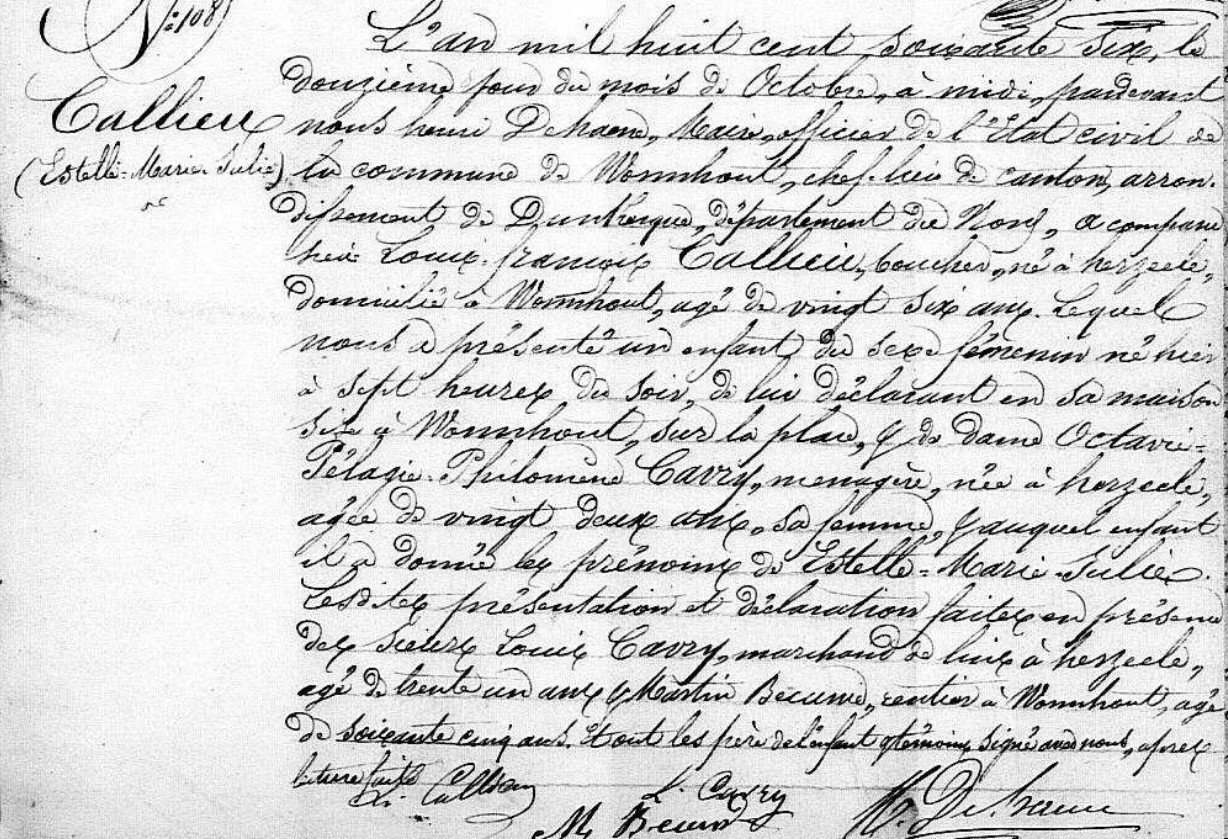 N:108
Callieu
(Estelle-Marie-Julie)
L'an mil huit cent soixante six, le
douzième jour du mois de Octobre, à midi, pardevant
nous henri Dehaene, Maire, officier de l'Etat civil de
la commune de Wormhout, chef-lieu de canton, arron-
dissement de Dunkerque, département du Nord, a comparu
Louis-françois Callieu, boucher, né à herzeele,
domicilié à Wormhout, agé de vingt six ans. Lequel
nous a présenté un enfant du sexe fémenin né hier
à sept heures du soir, de lui déclarant en sa maison
sise à Wormhout, sur la place, & de dame Octavie-
Pélagie-Philomène Cavry, menagère, née à herzeele,
agée de vingt deux ans, sa femme, & auquel enfant
il a donné les prénoms de Estelle-Marie-Julie.
Lesdites présentation et déclaration faites en présence
des sieurs Louis Cavry, marchand de lins à herzeele,
agé de trente un ans & Martin Becuwe, rentier à Wormhout, agé
de soixante cinq ans. Et ont les père de l'enfant & témoins signé avec nous, après
lecture faite
Callieu
L. Cavry
M. Becuwe
H. Dehaene